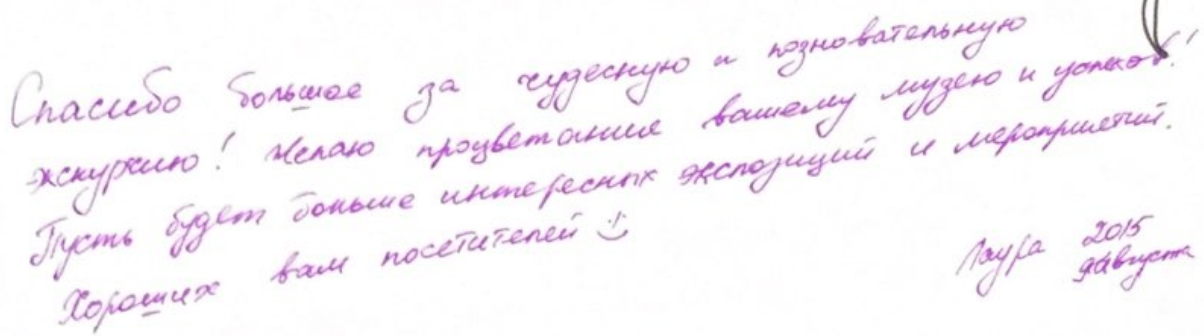 Спасибо большое за чудесную и познавательную
экскурсию! Желаю процветания вашему музею и успехов!
Пусть будет больше интересных экспозиций и мероприятий.
Хороших вам посетителей :)
Лаура 2015
9 августа